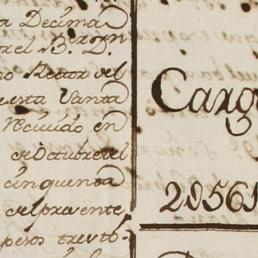 a Decima
en el B. D.
no Rector del
esta Santa
recivido en
de Octubre del
cinquenta
del presente
pesos
Carg
29561